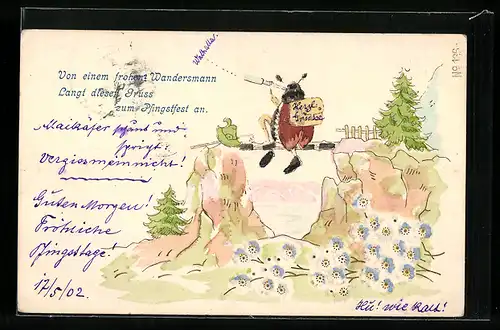 Wachella!
Von einem frohen Wandersmann
Langt dieser Gruss
zum Pfingstfest an.
Herzl.
Grüsse
Maikäfer schaut und
spricht:
Vergissmeinnicht!
Guten Morgen!
Fröhliche
Pfingsttage!
17/5/02.
Hu! wie kalt!